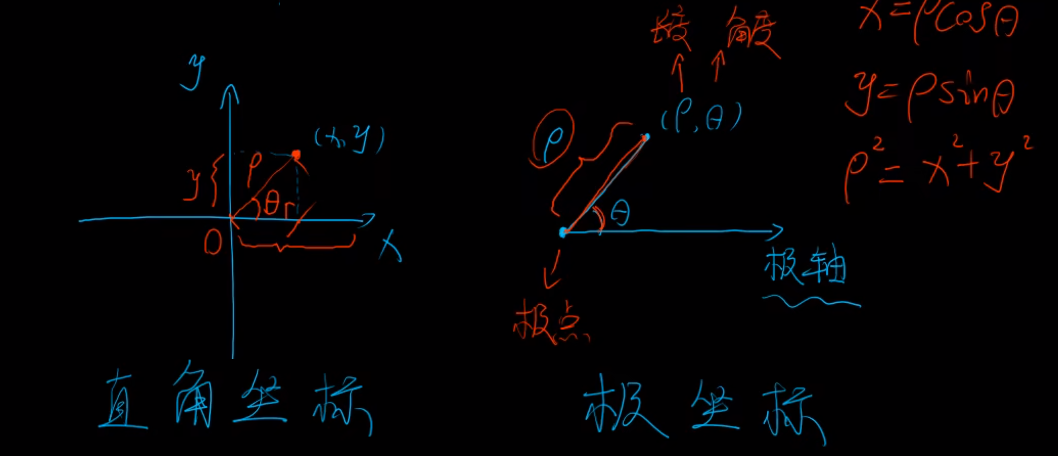 y
(x,y)
ρ
y
θ
O
x
直角坐标
长度 角度
(ρ,θ)
ρ
θ
极轴
极点
极坐标
x=ρcosθ
y=ρsinθ
ρ²=x²+y²